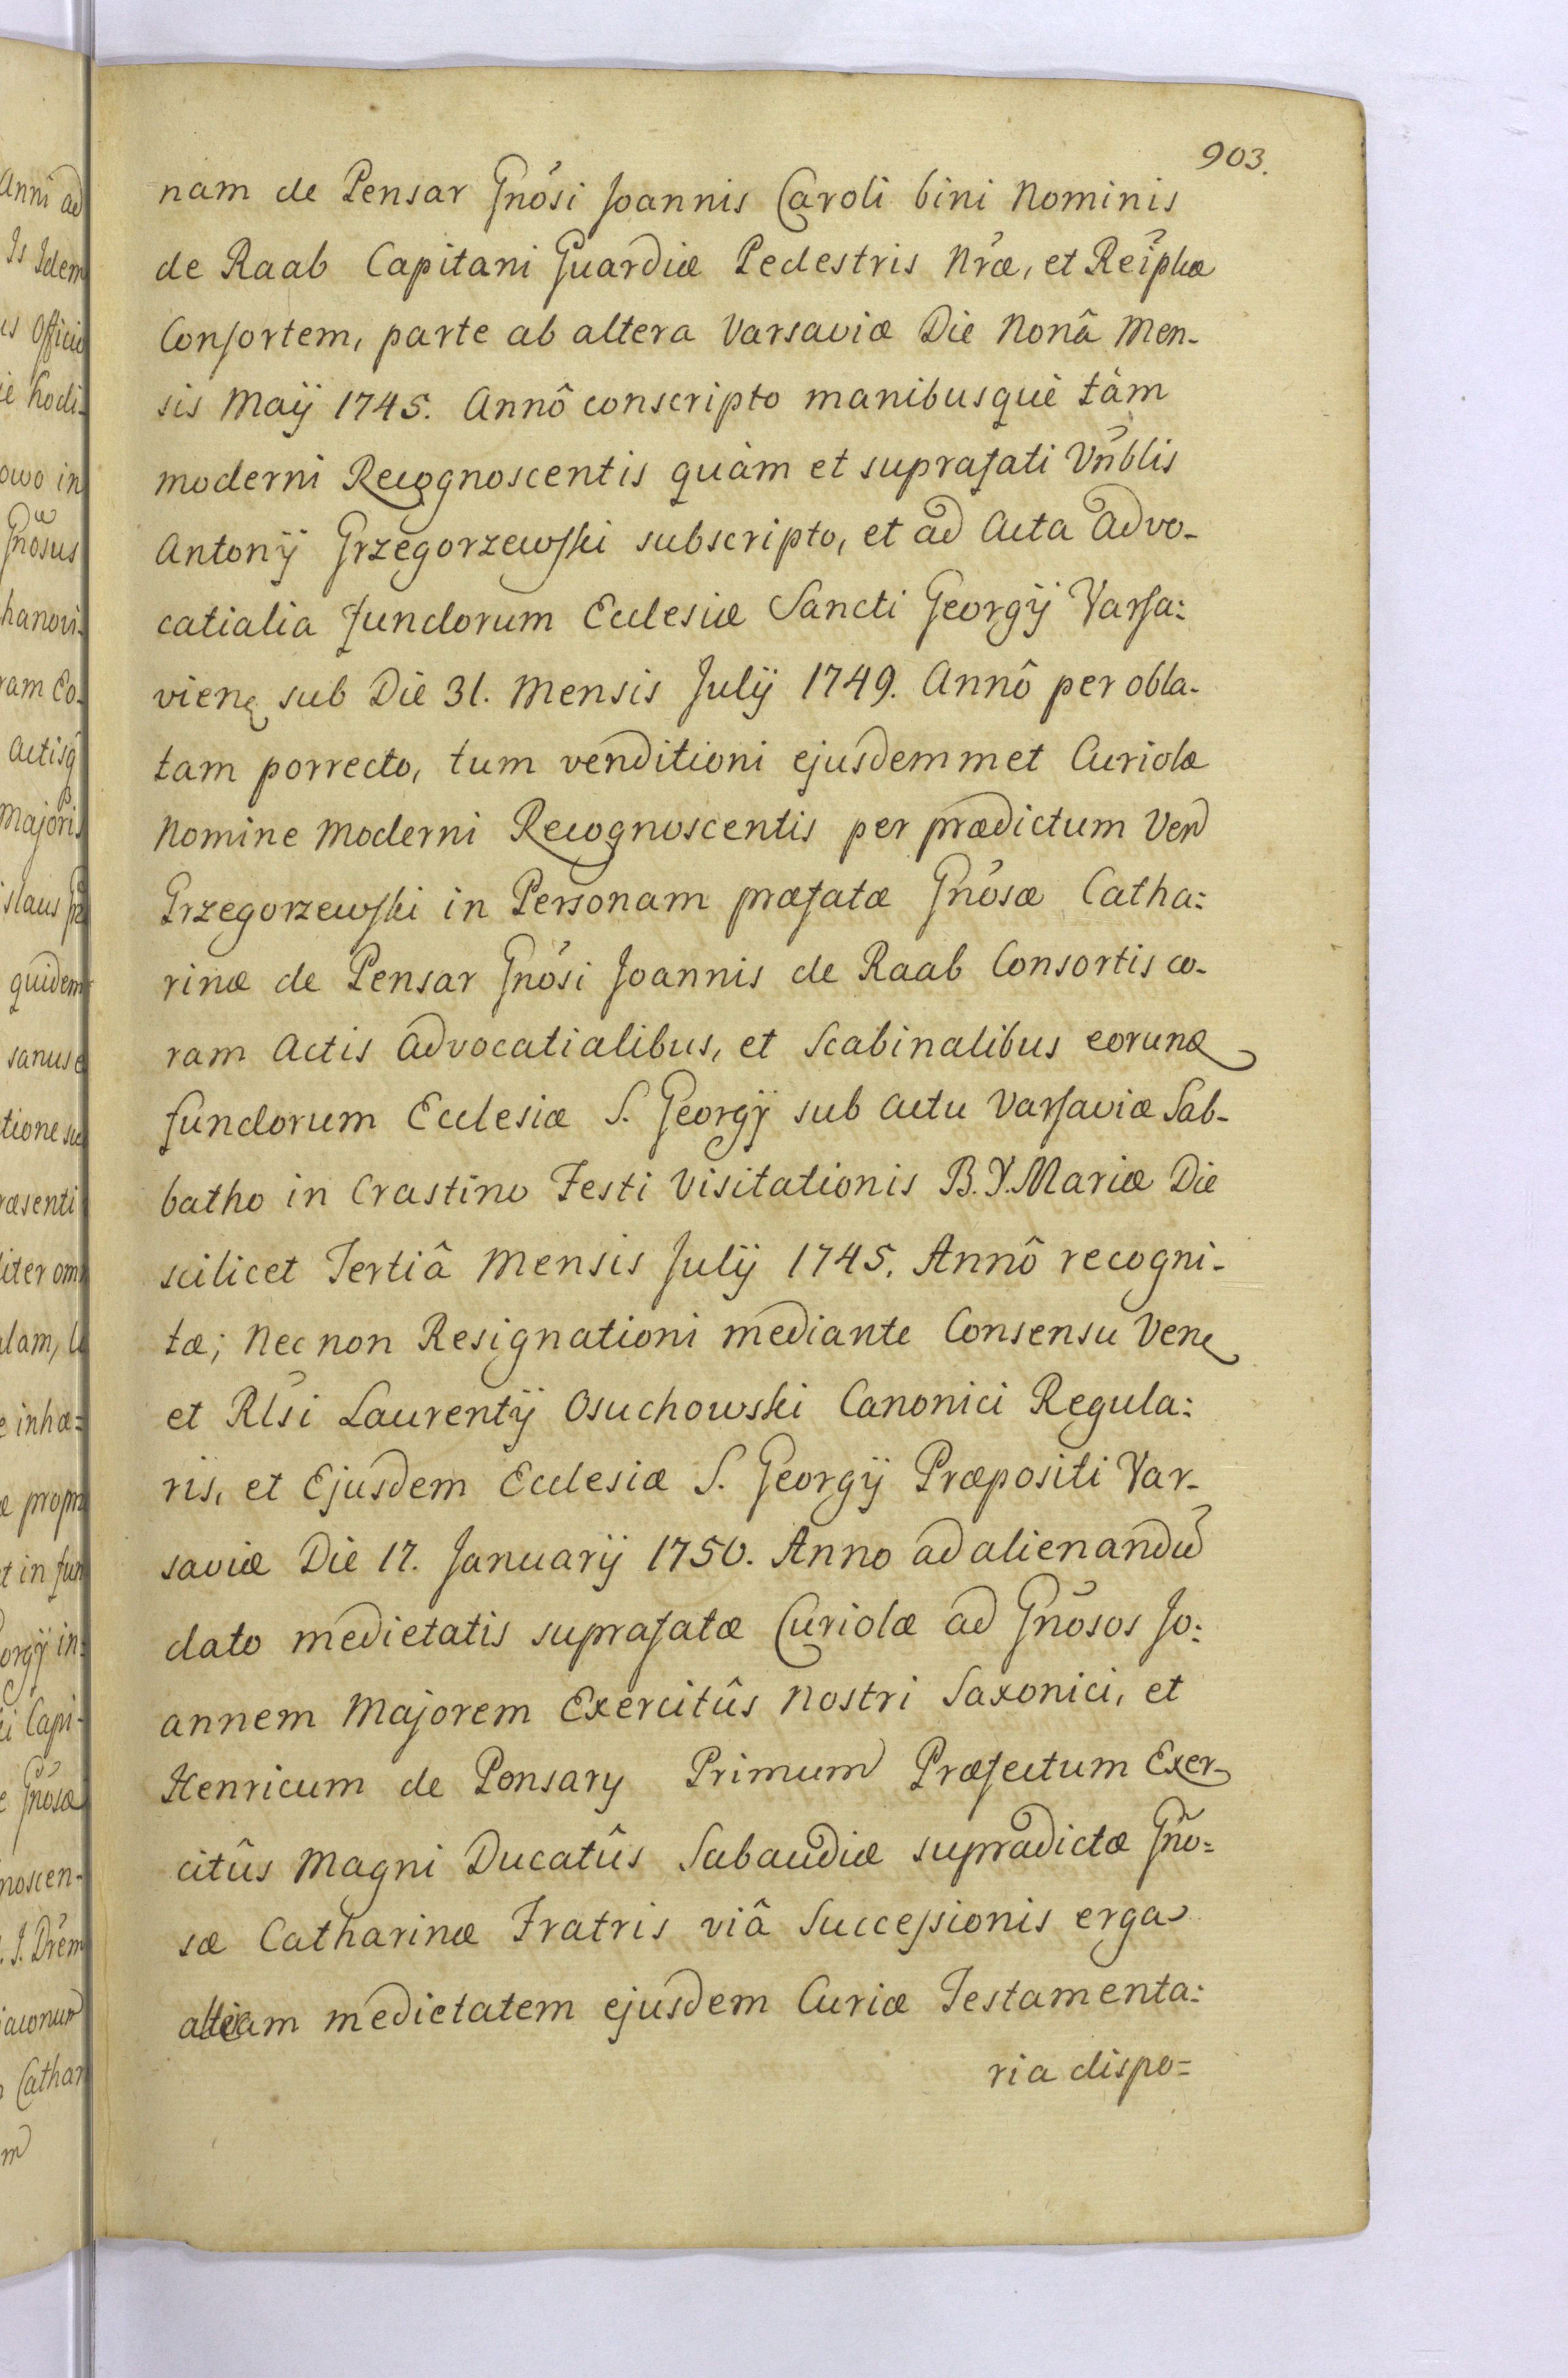 903.
nam de Pensar Gnosi Joannis Caroli bini Nominis
de Raab Capitani Guardiæ Pedestris Nræ, et Reiplcæ
Consortem, parte ab altera Varsaviæ Die Nonâ Men-
sis Maÿ 1745. Annô conscripto manibusquè tàm
moderni Recognoscentis quàm et suprafati Vnblis
Antonÿ Grzegorzewski subscripto, et ad Acta Advo-
catialia fundorum Ecclesiæ Sancti Georgÿ Varsa:
vien sub Die 31. Mensis Julÿ 1749. Annô per obla-
tam porrecto, tum venditioni ejusdemmet Curiolæ
Nomine Moderni Recognoscentis per prædictum Ven
Grzegorzewski in Personam præfatæ Gnosæ Catha:
rinæ de Pensar Gnosi Joannis de Raab Consortis co-
ram Actis Advocatialibus, et Scabinalibus eorund
fundorum Ecclesiæ S. Georgÿ sub actu Varsaviæ Sab-
batho in Crastino Festi Visitationis B. V. Mariæ Die
scilicet Tertiâ Mensis Julÿ 1745. Annô recogni-
tæ; Nec non Resignationi mediante Consensu Ven
et Rlsi Laurentÿ Osuchowski Canonici Regula:
ris, et Ejusdem Ecclesiæ S. Georgÿ Præpositi Var-
saviæ Die 17. Januarÿ 1750. Anno ad alienandū
dato medietatis suprafatæ Curiolæ ad Gnosos Jo:
annem Majorem Exercitûs Nostri Saxonici, et
Henricum de Ponsary Primum Præfectum Exer-
citûs Magni Ducatûs Sabaudiæ supradictæ Gno=
sæ Catharinæ Fratris viâ Successionis erga
alteram medietatem ejusdem Curiæ Testamenta:
ria dispo=